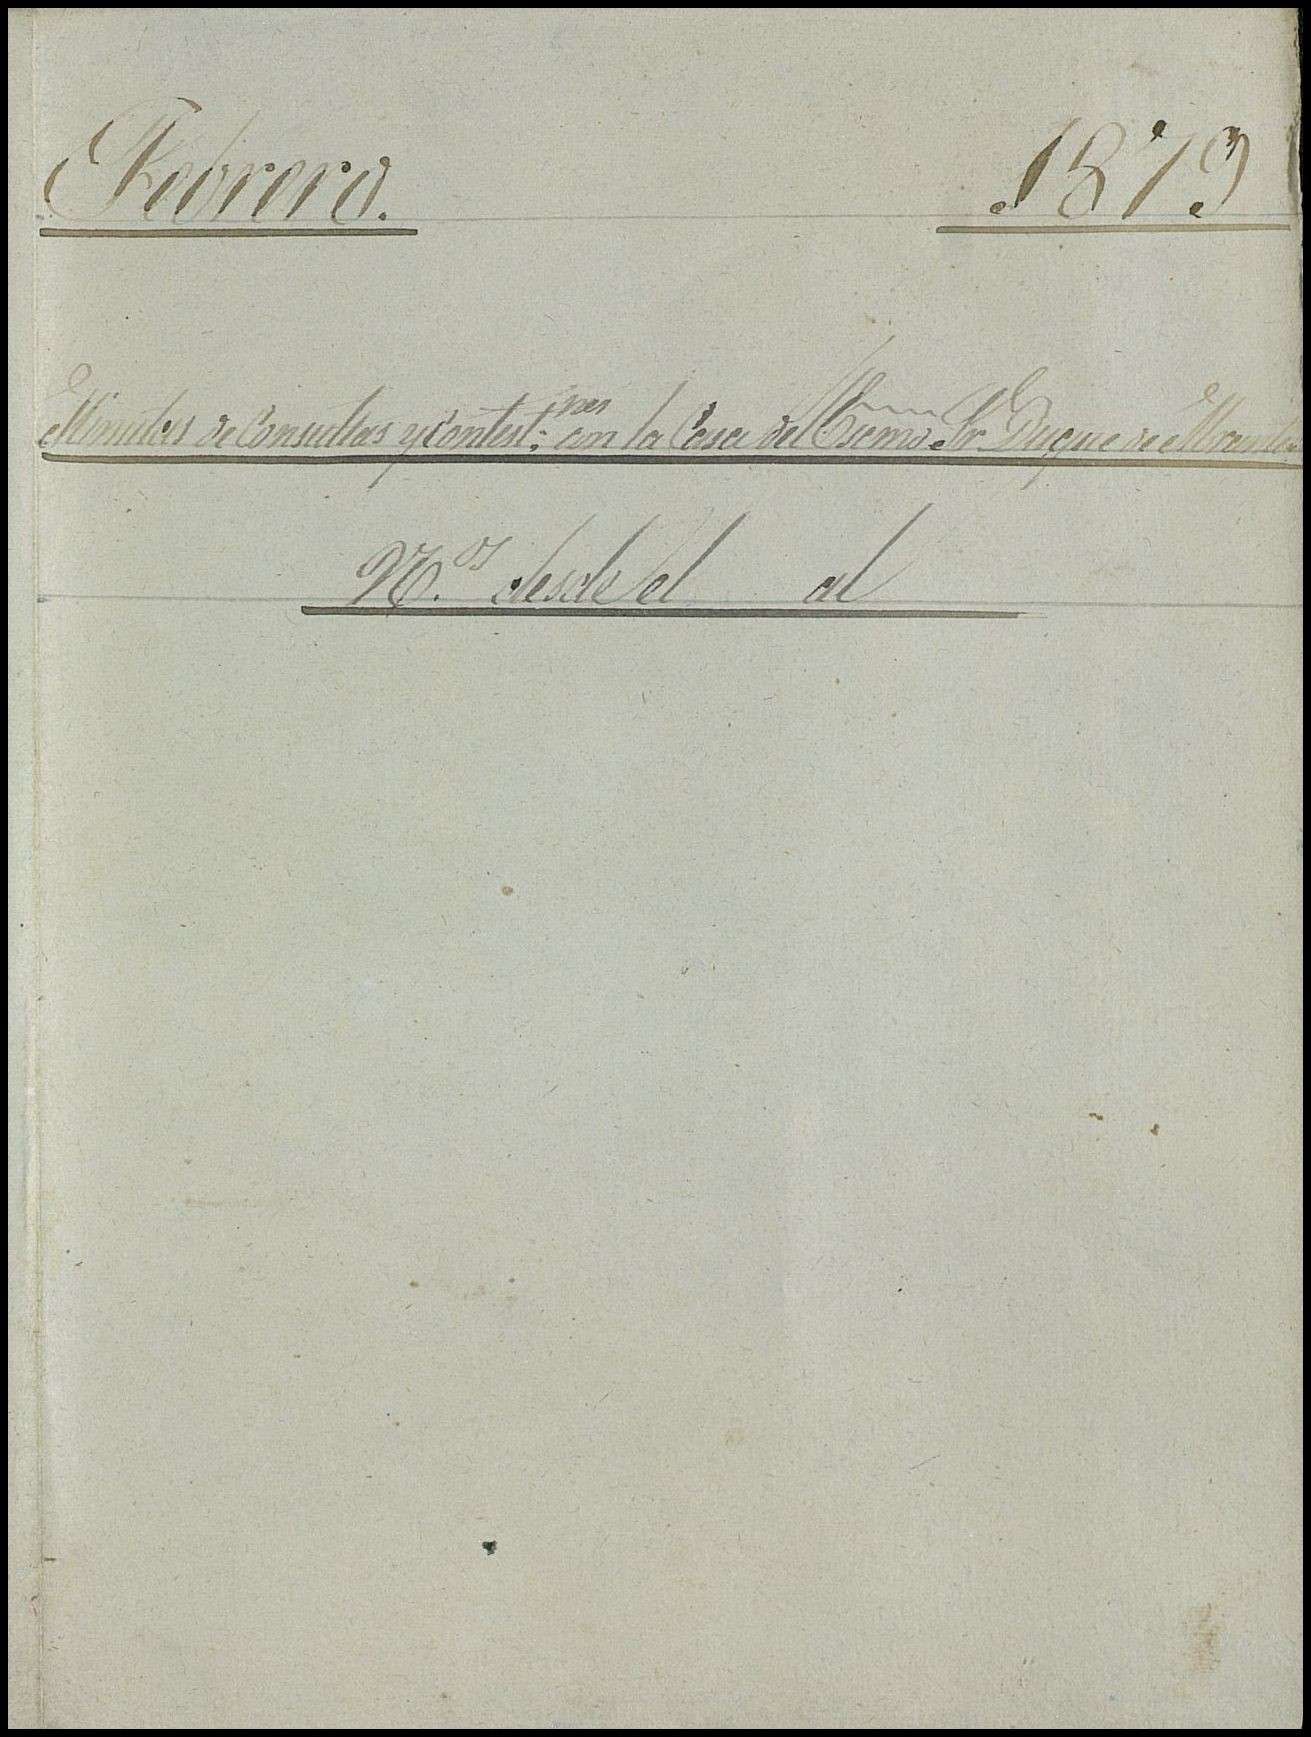 Febrero. 1879
Minutas de Consultas y Contest.nes con la Casa del Escmo. Sr. Duque de
N.os desde el al